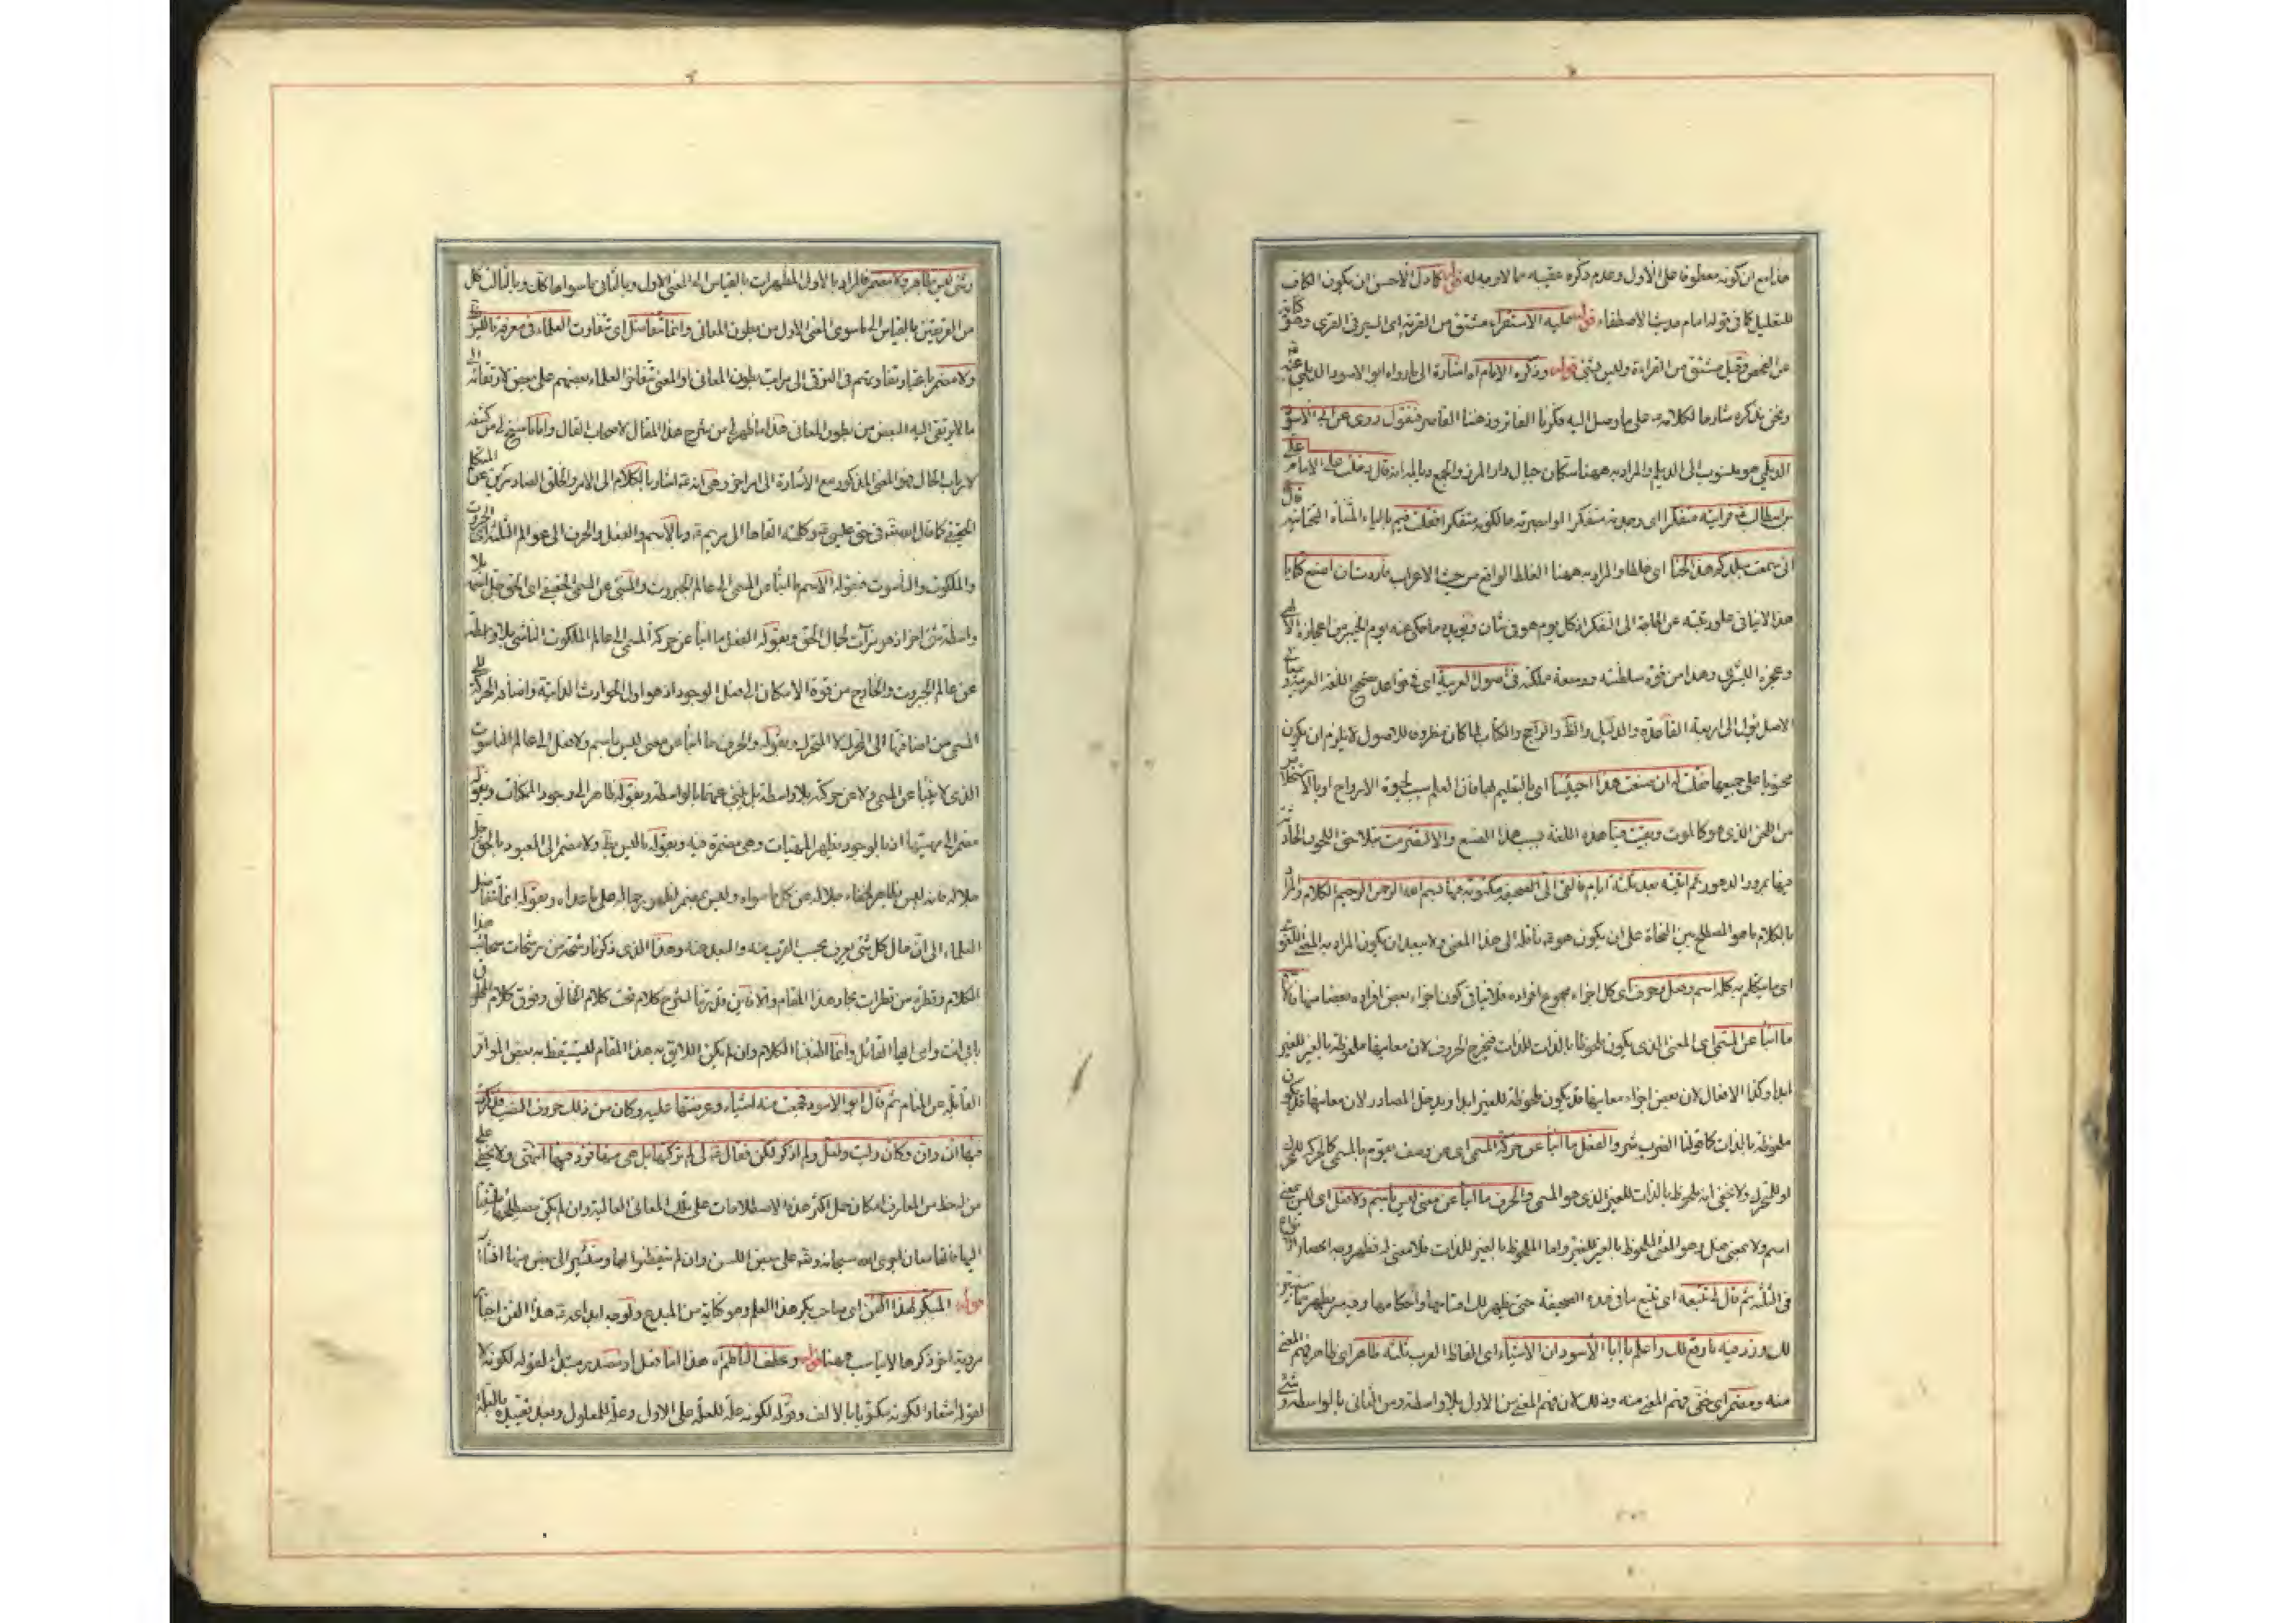 هذا مع ان كونه معطوفا على الأول وعدم ذكره عقيبه مما لا وجه له قوله كما دل الأحسن ان يكون الكاف
للتعليل كما في قوله امام مدينة الاصطفاء قوله عليه الاستقراء مشتق من القرية اى السير في القرى وهو كناية
عن الفحص وقيل مشتق من القراءة وليس بشئ قوله وذكره الامام اه اشارة الى ما رواه ابو الاسود الديلمى عنه
ونحن نذكره شارحا لكلامه على ما وصل اليه فكرنا الفاتر وذهننا القاصر فنقول روى عن ابى الاسود
الديلمى هو منسوب الى الديلم والمراد به ههنا سكان جبال دار المرز قال دخلت على الامام
بن ابيطالب فرايته متفكرا اى وجدته متفكرا او ابصرته حالكونه متفكرا فقلت فيم بالياء المثناة التحتانية قال
انى سمعت ببلدكم هذا لحنا اى غلطا والمراد به ههنا الغلط الواقع من حيث الاعراب فأردت ان اصنع كتابا
هذا لا ينافى علو رتبته عن الحاجة الى التفكر اذ كل يوم هو في شأن
وعجزه البشرى وهذا من قوة سلطنته ووسعة ملكته في اصول العربية اى في قواعد اللغة العربية
الاصل يؤل الى اربعة القاعدة والدليل والظ والراجح والكتاب لما كان ظروف للاصول لا يلزم ان يكون
محتويا على جميعها فقلت له ان صنعت هذا احييتنا اى بالتعليم لها فان العلم سبب لحيوة الارواح
من اللحن الذى هو كالموت وبقيت فينا هذه اللغة بسبب هذا الصنع
فيها بمرور الدهور ثم اتيته بعد ثلثة ايام فالقى الى الصحيفة مكتوبة فيها بسم الله الرحمن الرحيم الكلام والمراد
بالكلام ما هو المصطلح بين النحاة على ان يكون هو ناقله الى هذا المعنى ولا يبعد ان يكون المراد به المعنى اللغوى
اى ما يتكلم به كله اسم وفعل وحرف اى كل اجزاء مجموع افراده فلا ينافى كون اجزاء بعض افراده بعضا منها
ما انبأ عن المسمى اى المعنى الذى يكون ملحوظا بالذات للذات فيخرج الحروف لان معانيها ملحوظة بالغير للغير
ابدا وكذا الافعال لان بعض اجزاء معانيها قد يكون ملحوظة للغير ابدا ويدخل المصادر لان معانيها قد يكون
ملحوظة بالذات كما قولنا الضرب شر والفعل ما انبأ عن حركة المسمى اى عن وصف يقوم بالمسمى كالحركة
او للتحرك ولا يخفى انه ملحوظ بالذات للغير الذى هو المسمى والحرف ما انبأ عن معنى ليس باسم ولا فعل اى ليس بمعنى
اسم ولا بمعنى فعل وهو المعنى الملحوظ بالغير للغير واما الملحوظ بالغير للذات فلا معنى له فظهر وجه انحصار
في الثلثة ثم قال لى تتبعه اى تتبع ما في هذه الصحيفة حتى يظهر لك اقسامها واحكامها
لك وزد فيه ما وقع لك واعلم يا ابا الأسود ان الاشياء اى الفاظ العرب ثلثة ظاهر اى ظاهر فهم المعنى
منه ومضمر اى خفى فهم المعنى منه وذلك لان فهم المعنى من الاول بلا واسطة ومن الثانى بالواسطة وشئ
وشئ ليس بظاهر ولا مضمر فالمراد بالاول المظهرات بالقياس الى المعنى الاول وبالثانى ما سواها كان وبالثالث كل
من الفريقين بالقياس الى ما سوى المعنى الاول من بطون المعانى وانما تتفاضل اى تتفاوت العلماء في معرفة ما ليس
ولا مضمر باعتبار تفاوتهم في الترقى الى مراتب بطون المعانى او المعنى تتفاضل العلماء بعضهم على بعض لارتقائه
ما لا يرتقى اليه البعض من بطون المعانى هذا ما ظهر لى من شرح هذا المقال لاصحاب القال واما ما سنح لى من كشفه
لارباب الحال فهو المعنى المذكور مع الاشارة الى امر اخر وهى انه اشار بالكلام الى الامر والخلق الصادرين عن المتكلم
الحقيقى كما قال الله تعالى في حق عيسى وكلمته القاها الى مريم وبالاسم والفعل والحرف الى عوالم الثلثة اى الجبروت
والملكوت والناسوت فبقوله الاسم ما انبأ عن المسمى الى عالم الجبروت والمنبئ عن المسمى الحقيقى اى الحق بلا
واسطة شئ اخر اذ هو مرآت لجمال الحق وبقوله الفعل ما انبأ عن حركة المسمى الى عالم الملكوت الناشى بلا واسطة
عن عالم الجبروت والخارج من قوة الامكان الى فعل الوجود اذ هو اول الحوادث الذاتية واضافة الحركة الى
المسمى من اضافتها الى المحرك لا المتحرك وبقوله والحرف ما انبأ عن معنى ليس باسم ولا فعل الى عالم الناسوت
الذى لا ينبأ عن المسمى ولا عن حركته بلا واسطة بل ينبئ عنهما بالواسطة وبقوله ظاهر الى وجود الممكنات وبقوله
مضمر الى مهيتها اذ بالوجود يظهر المهيات وهى مضمرة فيه وبقوله ما ليس بظ ولا مضمر الى المعبود بالحق جل
جلاله فانه ليس بظاهر لخفاء جلاله عن كل ما سواه وليس بمضمر لظهور جماله على ما عداه وبقوله انما تتفاضل
العلماء الى ان حال كل شئ يعرف بحسب القرب منه والبعد عنه وهذا الذى ذكرنا رشحة من رشحات سحاب هذا
الكلام وقطرة من قطرات بحار هذا المقام والا فاين قدرتنا لشرح كلام تحت كلام الخالق وفوق كلام المخلوق
بابى انت وامى ايها القائل وانما اطنبنا الكلام وان لم يكن اللايق به هذا المقام ليستيقظ به بعض
الغافلين عن المنام ثم قال ابو الاسود فجمعت منه اشياء وعرضتها عليه وكان من ذلك حروف النصب فذكرت
فيها ان وان وكان وليت ولعل ولم اذكر لكن فقال لى لم تركتها بل هى منها فزد فيها انتهى ولا يخفى على
من له حظ من المعارف امكان حمل اكثر هذه الاصطلاحات على تلك المعانى العالية وان لم يكن
اليها فانها معان اجرى الله سبحانه وتعالى على بعض اللسن وان لم يتفطنوا لها وسنشير الى بعض منها
قوله المبتكر لهذا الفن اى صاحب بكر هذا العلم وهو كناية عن المبدع ولوجه ابداعه هذا الفن
مروية اخر ذكرها لا يناسب ههنا قوله وعطف الناظم اه
لقوله اشعارا لكونه مكتوبا بالالف وقوله لكونه علة للعلة على الاول وعلة للمعلول